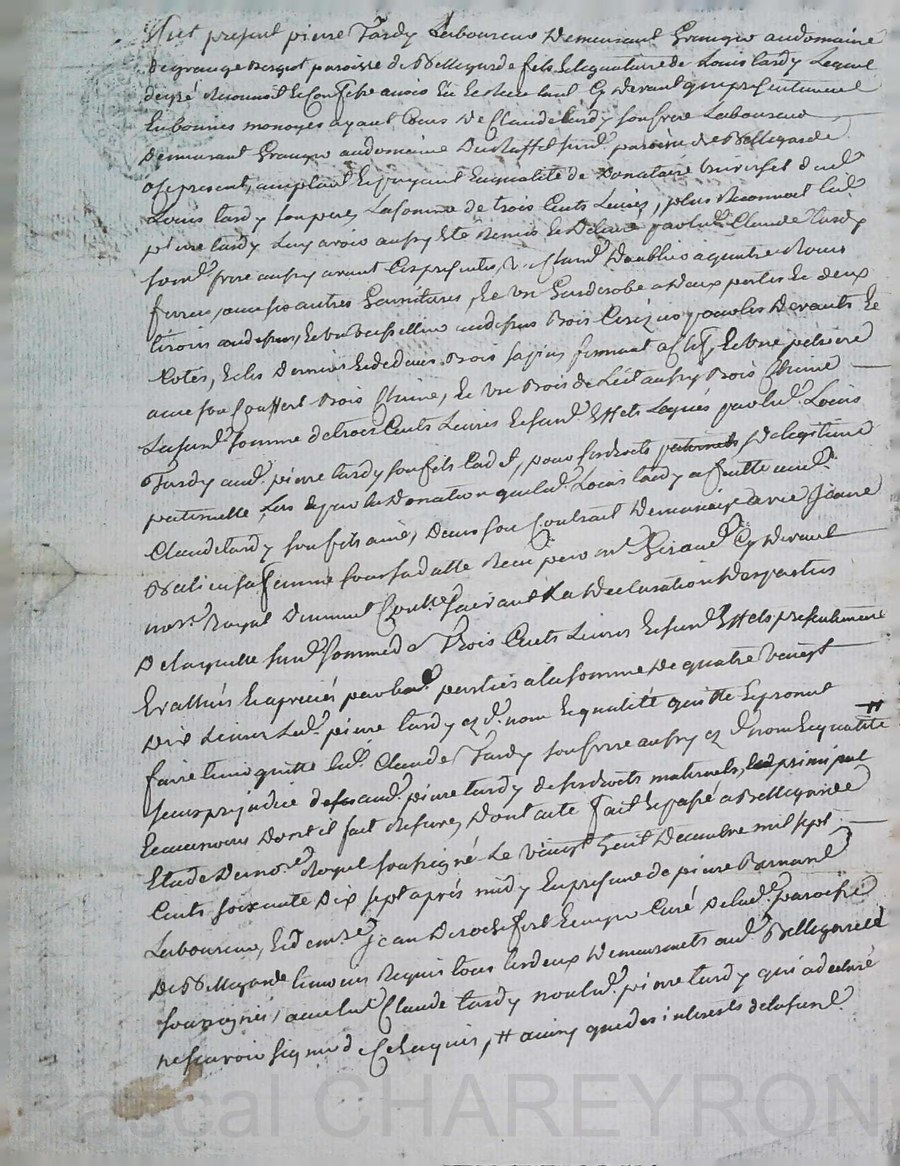 fut present pierre Tardy Laboureur Demeurant Granger au domaine
de grange paroisse de Bellegarde fils & legataire de Louis tardy Lequel
de gré Reconnoit & Confesse avoir Eu & Receu tant Cy devant que presentement
En bonnes monoyes ayant Cours De Claude tardy son frere Laboureur
Demeurant Granger au domaine paroisse de Bellegarde
issy present, acceptant & payant En qualité de Donataire universel dud.
Louis tardy son pere, La somme de trois Cents Livres, plus Reconnoit led.
pierre tardy Luy avoir aussy Eté Remis & Delivré par led. Claude tardy
sond. frere aussy avant Ces presentes, a quatre Roues
autres Garnitures, & un Garderobe a Deux portes & deux
tiroirs au dessus Bois Cerizier pour les Devants &
Cotés, & les Derriere & dedans Bois sapin fermant a Clef, & une petriere
avec son Couvert Bois Chaine, & un Bois de Lict aussy Bois Chaine
La susd. somme de trois Cents Livres & susd. Effets Legués par led. Louis
Tardy aud. pierre tardy son fils Cadet, pour ses droits paternels de legitime
paternelle, Lors de la Donation que led. Louis tardy a faitte aud.
Claude tardy son fils ainé, Dans son Contract De mariage avec Jeanne
sa femme sous sa datte Receu par Me Giraud Cy devant
nore. Royal suivant La Declaration Des parties
De laquelle susd. somme de Trois Cents Livres & susd. Effets presentement
Evalués & apreciés par lesd. parties a la somme De quatre vingt
Dix Livres Led. pierre tardy ez d. nom & qualité quitte & promet
faire tenir quitte led. Claude Tardy son frere aussy ez d. nom & qualité #
sans prejudice aud. pierre tardy de ses droits maternels, En principal
& accessoires Dont il fait Reserve, Dont acte fait & passé a Bellegarde
Etude Du nore. Royal soussigné Le vingt huit Decembre mil sept
Cents soixante Dix sept après midy En presence de pierre Bernard
Laboureur, & de mre. Jean Derochefort Ecuyer Curé De lad. paroisse
De Bellegarde temoins Requis tous Les deux Demeurants aud. Bellegarde
soussignés, avec led. Claude tardy non led. pierre tardy qui a declaré
ne sçavoir signer de Ce Enquis, # ainsy que des interests de la susd.
Pascal CHAREYRON